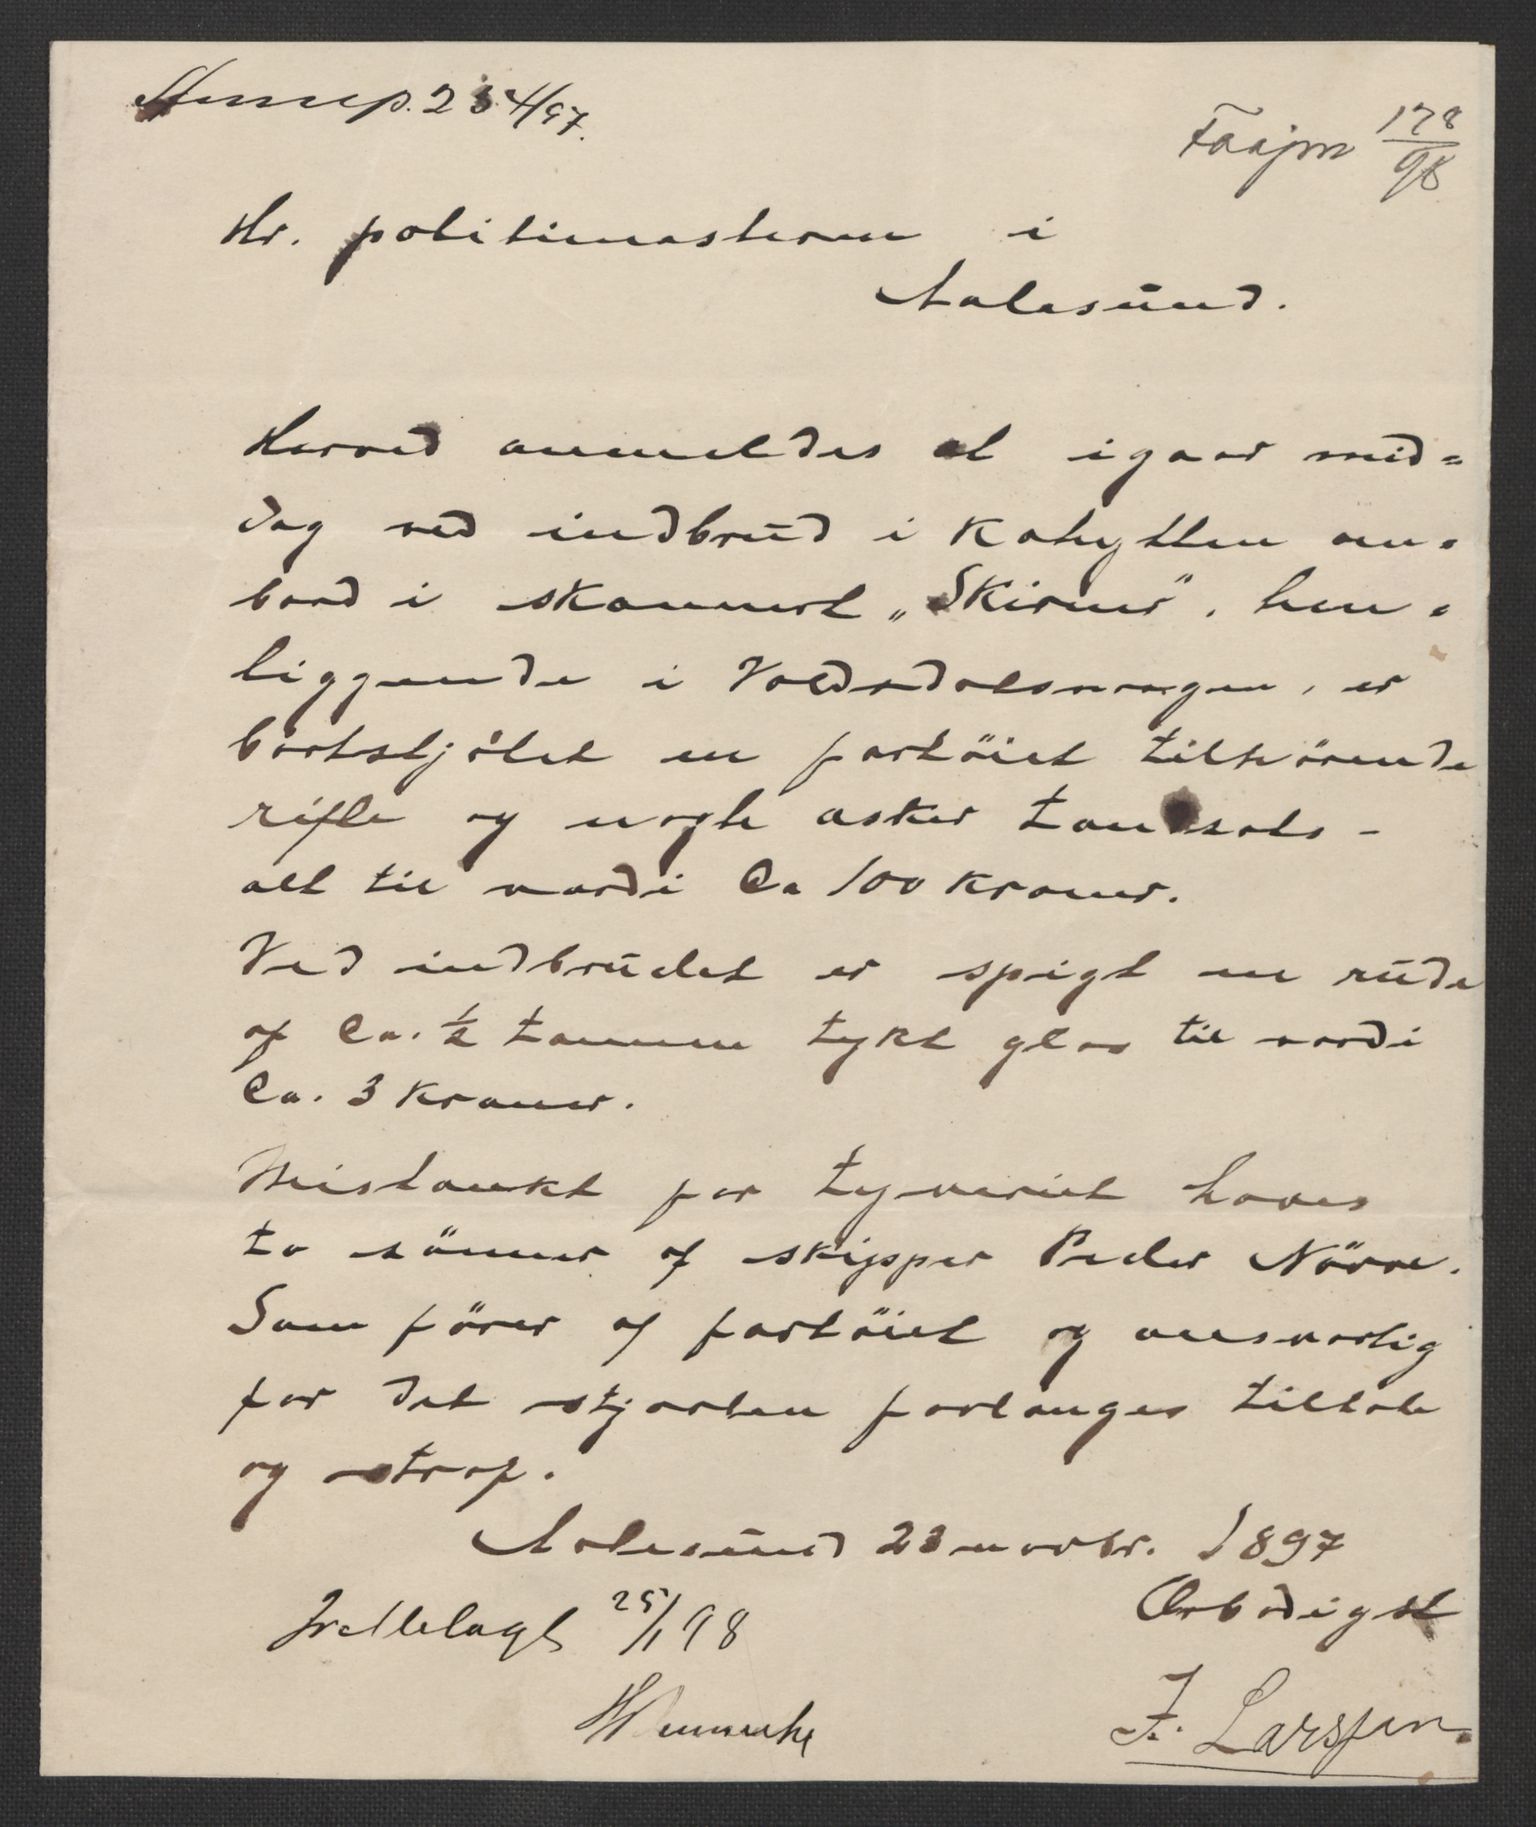 234/97.
178/98
Hr. politimesteren i
Aalesund.
Herved anmeldes at igaar mid=
dag ved indbrud i Kahytten om=
bord i skonnert „Skirner", hen=
liggende i Voldsdalsvaagen, er
bortstjålet en fartöiet tilhörende
rifle og nogle æsker
alt til værdi Ca 100 Kroner.
Ved indbrudet er en rude
af Ca. ½ tomme tykt glas til værdi
Ca. 3 Kroner.
Mistænkt for tyveriet haves
to sönner af skipper Peder Nörve.
Som förer af fartöiet og ansvarlig
for det stjaalen forlanges tiltale
og straf.
Aalesund 23 novbr. 1897
Ærbödigst
Irettelagt 25/1 98
F. Larssen